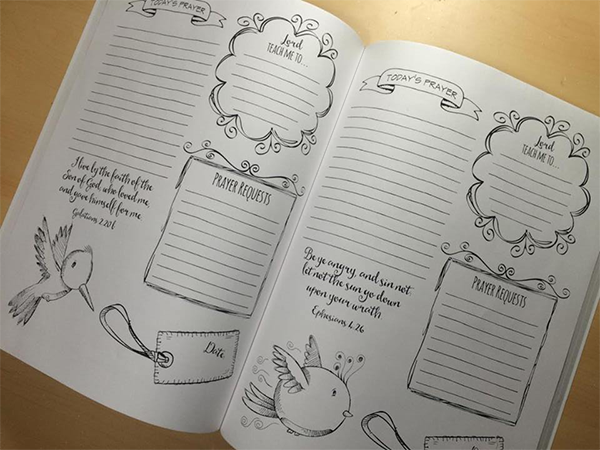 TODAY'S PRAYER
Lord
TEACH ME TO...
I live by the faith of the
Son of God, who loved me,
and gave himself for me
Galatians 2.20b
PRAYER REQUESTS
Date
TODAY'S PRAYER
Lord
TEACH ME TO...
Be ye angry, and sin not
let not the sun go down
upon your wrath
Ephesians 4.26
PRAYER REQUESTS